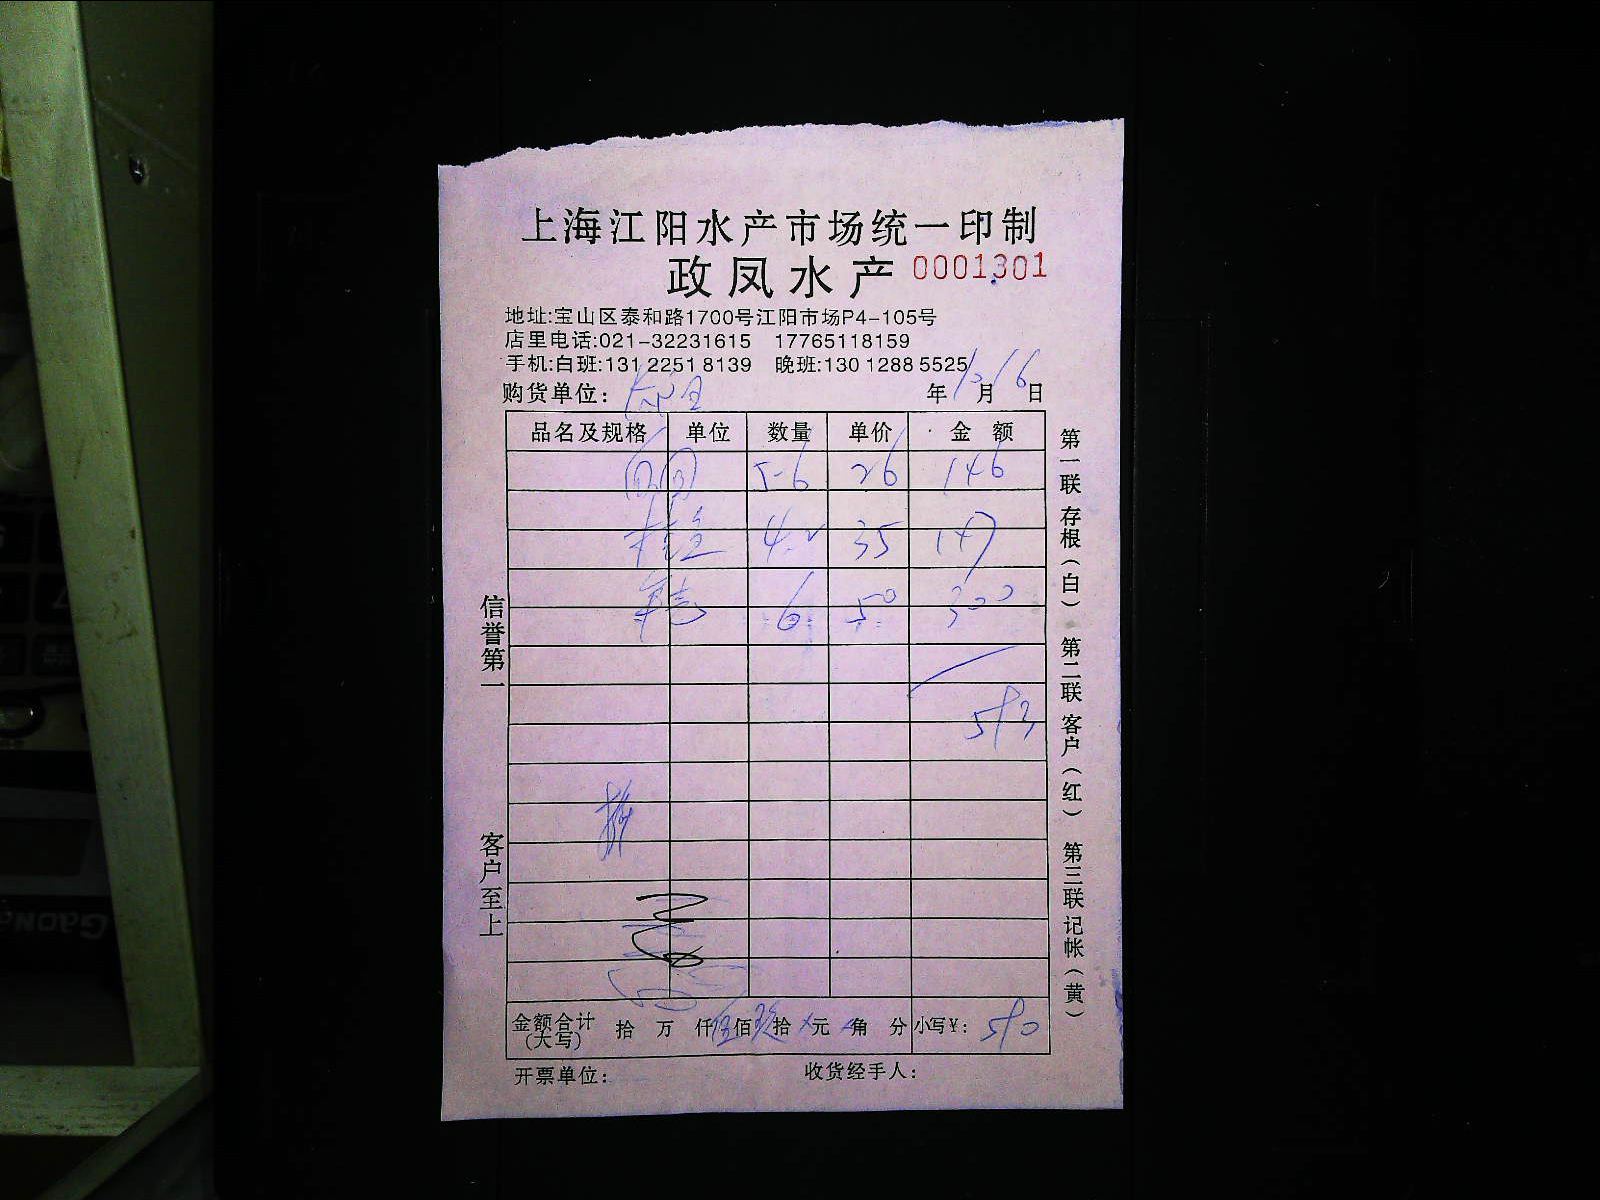 上海江阳水产市场统一印制
政凤水产 0001301
地址:宝山区泰和路1700号江阳市场P4-105号
店里电话:021-32231615 17765118159
手机:白班:131 2251 8139 晚班:130 1288 5525
购货单位: 年10月16日
品名及规格 单位 数量 单价 金额
5.6 26 146
桂鱼 4.2 35 147
6 50 300
593
金额合计(大写) 拾 万 仟伍佰玖拾 元 角 分 小写¥: 590
开票单位: 收货经手人:
信誉第一
客户至上
第一联 存根(白) 第二联 客户(红) 第三联 记帐(黄)
GAONA